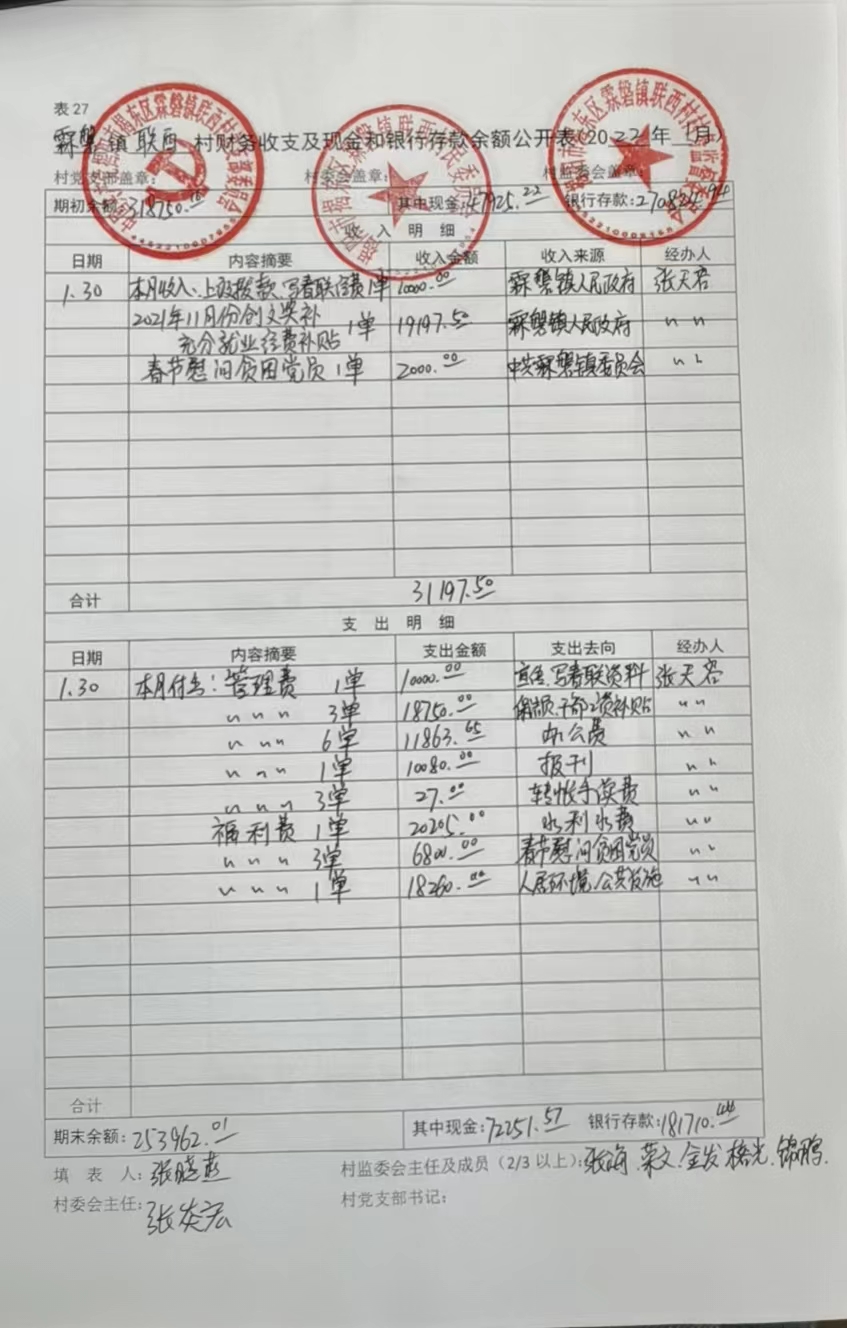 表 27
霖磐 镇 联西 村财务收支及现金和银行存款余额公开表(2022 年 1 月)
村党支部盖章: 村委会盖章: 村监委会盖章:
期初余额:318750.16 其中现金:47925.22 银行存款:270824.94
收 入 明 细
日期 内容摘要 收入金额 收入来源 经办人
1.30 本月收入:上政拨款、写春联经费1单 10000.00 霖磐镇人民政府 张天君
2021年11月份创文奖补
充分就业经费补贴 1单 19197.50 霖磐镇人民政府 〃 〃
春节慰问贫困党员 1单 2000.00 中共霖磐镇委员会 〃 〃
合计 31197.50
支 出 明 细
日期 内容摘要 支出金额 支出去向 经办人
1.30 本月付出:管理费 1单 10000.00 宣传、写春联资料 张天君
〃 〃 〃 3单 18750.00 干部工资补贴 〃 〃
〃 〃 〃 6单 11863.65 办公费 〃 〃
〃 〃 〃 1单 10080.00 报刊 〃 〃
〃 〃 〃 3单 27.00 转帐手续费 〃 〃
福利费 1单 20205.00 水利水费 〃 〃
〃 〃 〃 3单 6800.00 春节慰问贫困党员 〃 〃
〃 〃 〃 1单 18260.00 人居环境、公共设施 〃 〃
合计
期末余额:253962.01 其中现金:72251.57 银行存款:181710.44
填 表 人:张晓燕 村监委会主任及成员(2/3 以上):张海 荣文 金发 锦鹏
村委会主任:张炎宏 村党支部书记: